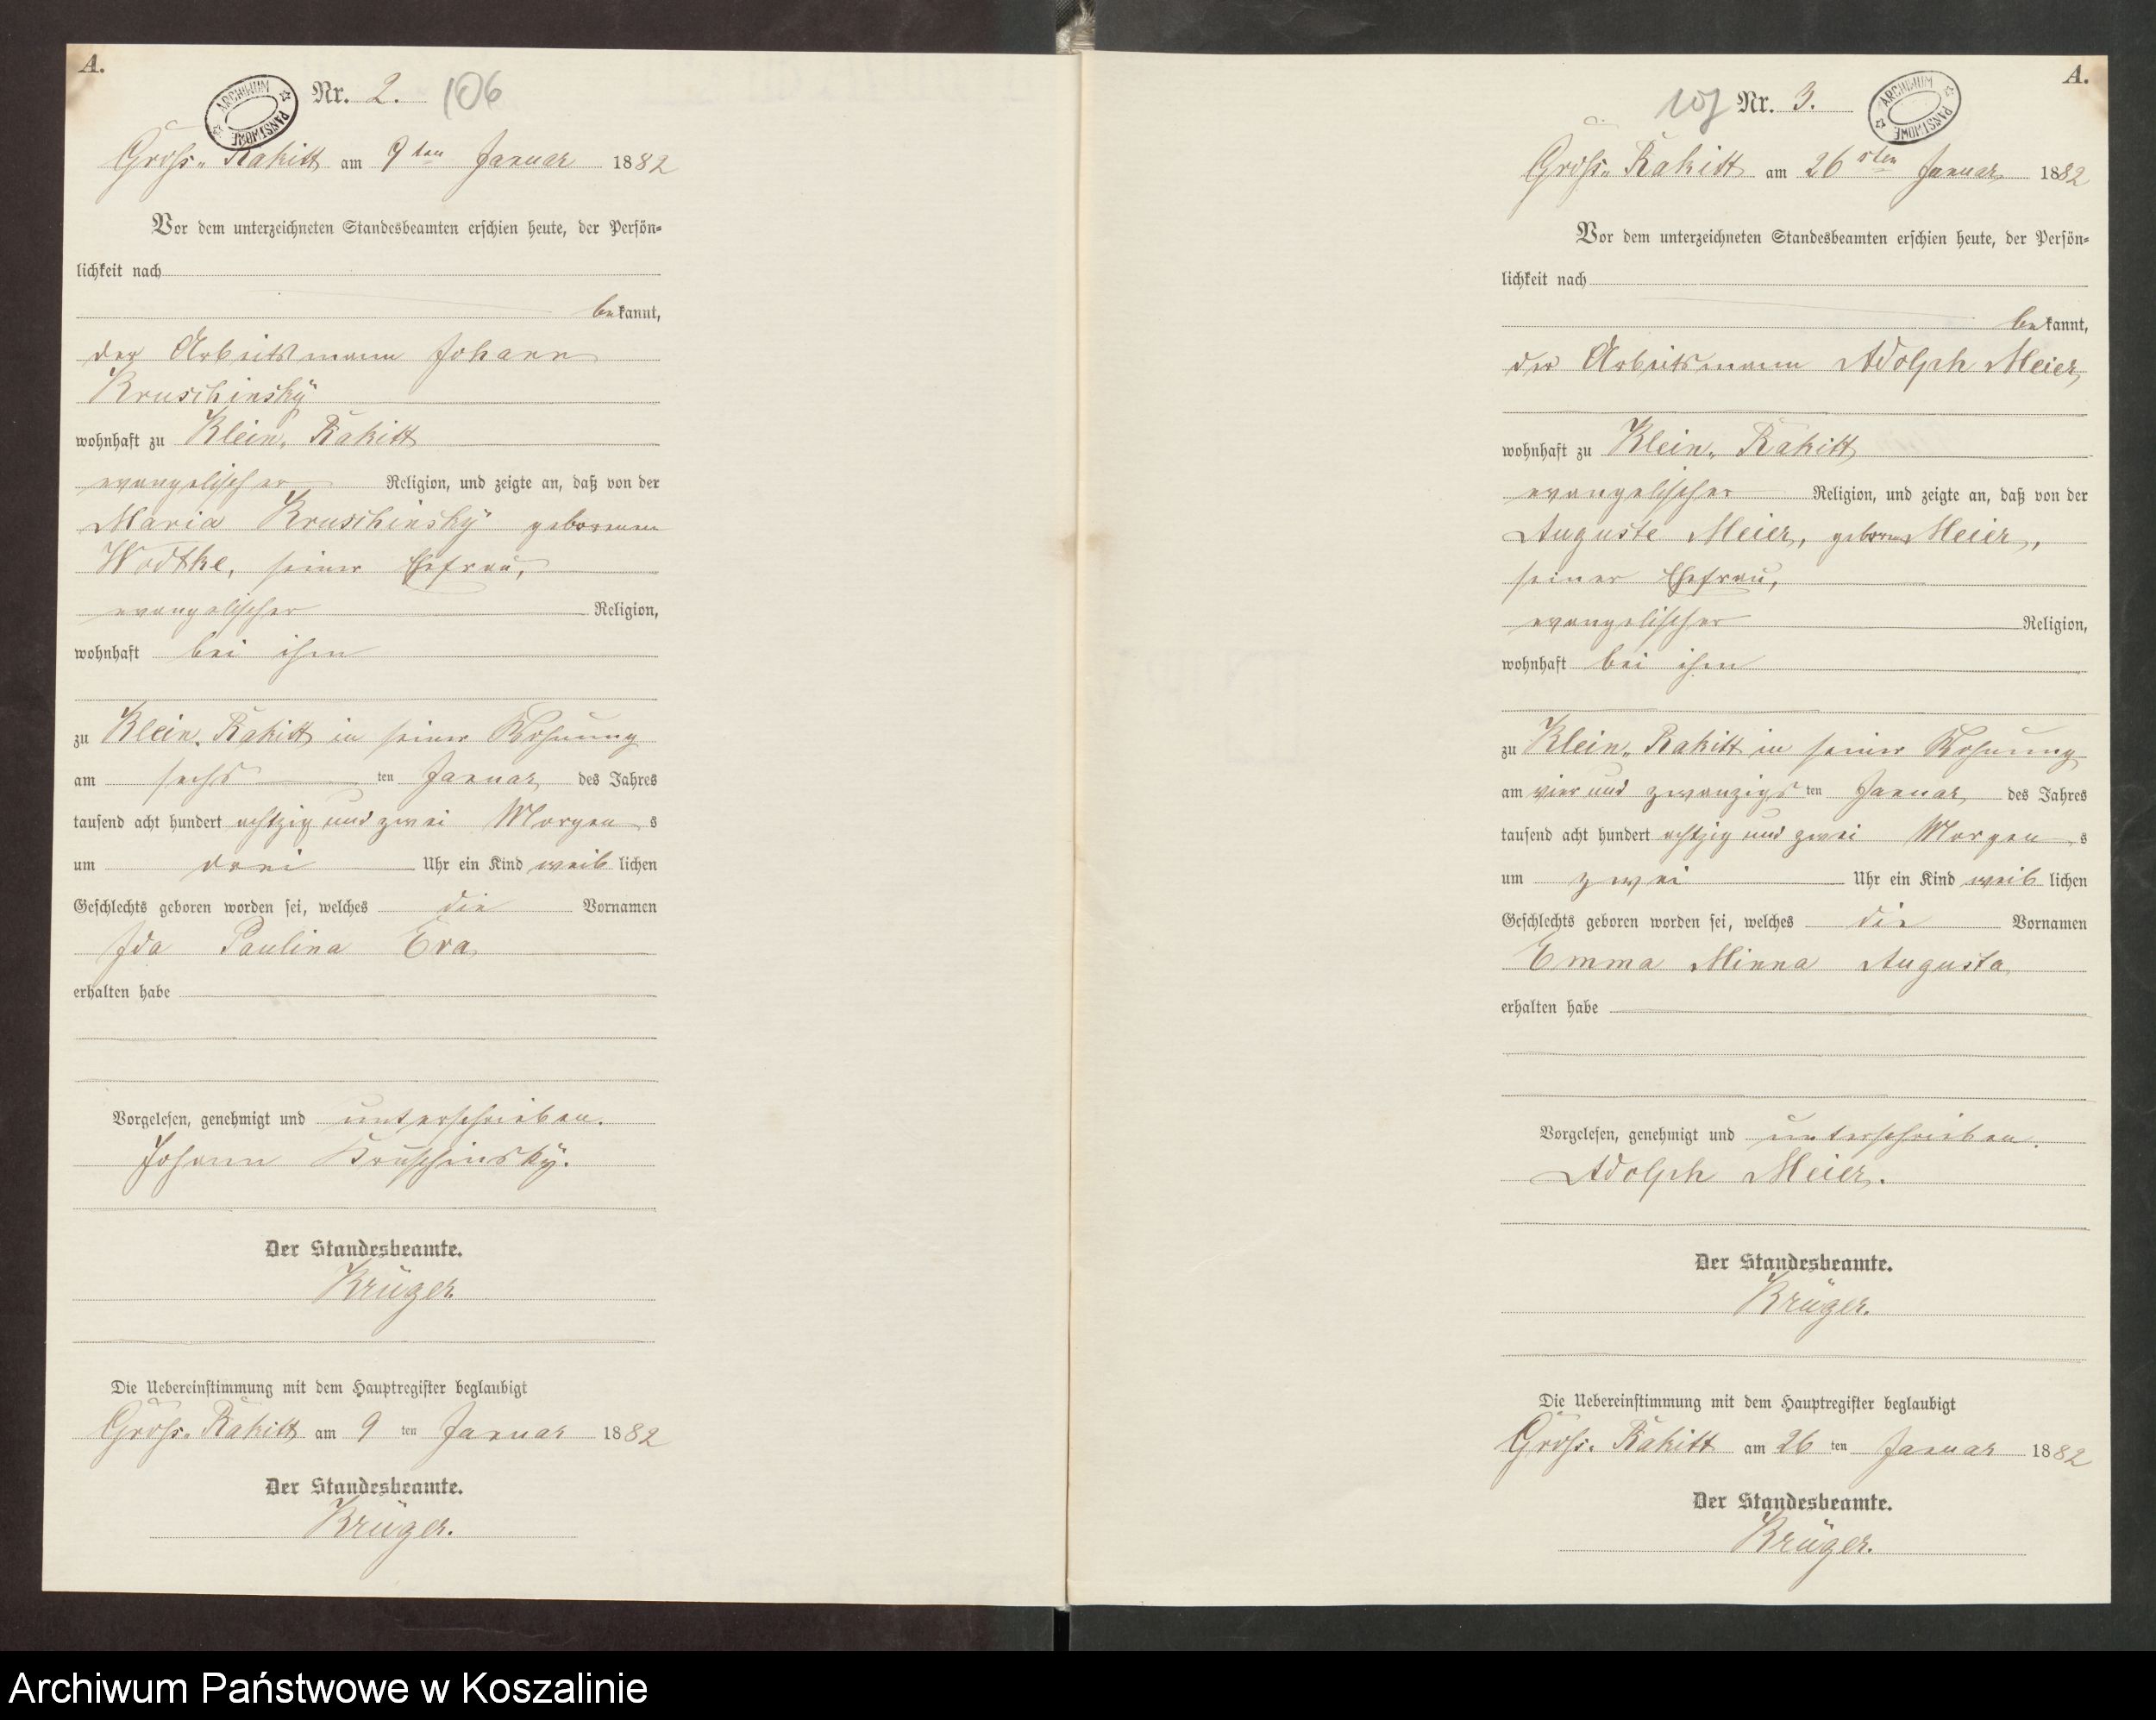 A.
ARCHIWUM PAŃSTWOWE
Nr. 2. 106
Gross„ Rakitt am 9ten Januar 1882
Vor dem unterzeichneten Standesbeamten erschien heute, der Persön-
lichkeit nach
bekannt,
der Arbeitsmann Johann
Kruschinsky
wohnhaft zu Klein„ Rakitt
evangelischer Religion, und zeigte an, daß von der
Maria Kruschinsky geborenen
Wodtke, seiner Ehefrau,
evangelischer Religion,
wohnhaft bei ihm
zu Klein„ Rakitt in seiner Wohnung
am sechs ten Januar des Jahres
tausend acht hundert achtzig und zwei Morgens
um drei Uhr ein Kind weiblichen
Geschlechts geboren worden sei, welches die Vornamen
Ida Paulina Eva
erhalten habe
Vorgelesen, genehmigt und unterschrieben.
Johann Kruschinsky.
Der Standesbeamte.
Krüger.
Die Uebereinstimmung mit dem Hauptregister beglaubigt
Gross„ Rakitt am 9 ten Januar 1882
Der Standesbeamte.
Krüger.
A.
107 Nr. 3.
ARCHIWUM PAŃSTWOWE
Gross„ Rakitt am 26sten Januar 1882
Vor dem unterzeichneten Standesbeamten erschien heute, der Persön-
lichkeit nach
bekannt,
der Arbeitsmann Adolph Meier,
wohnhaft zu Klein„ Rakitt
evangelischer Religion, und zeigte an, daß von der
Auguste Meier, geborene Meier,
seiner Ehefrau,
evangelischer Religion,
wohnhaft bei ihm
zu Klein„ Rakitt in seiner Wohnung
am vier und zwanzigs ten Januar des Jahres
tausend acht hundert achtzig und zwei Morgens
um zwei Uhr ein Kind weiblichen
Geschlechts geboren worden sei, welches die Vornamen
Emma Minna Augusta
erhalten habe
Vorgelesen, genehmigt und unterschrieben.
Adolph Meier.
Der Standesbeamte.
Krüger.
Die Uebereinstimmung mit dem Hauptregister beglaubigt
Gross„ Rakitt am 26 ten Januar 1882
Der Standesbeamte.
Krüger.
Archiwum Państwowe w Koszalinie